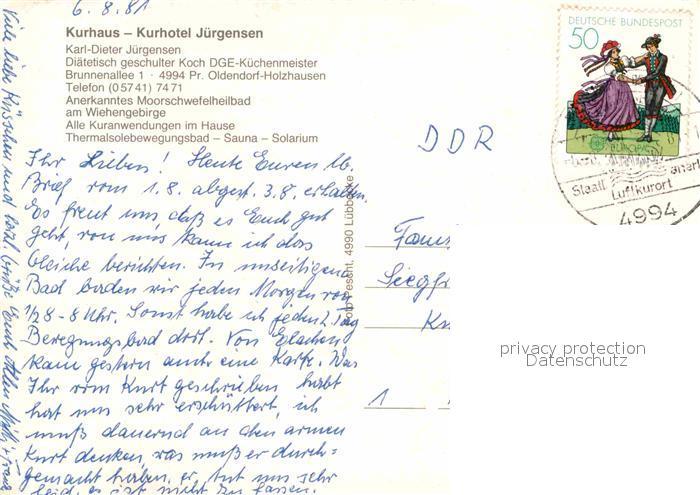 6. 8. 81
Kurhaus – Kurhotel Jürgensen
Karl-Dieter Jürgensen
Diätetisch geschulter Koch DGE-Küchenmeister
Brunnenallee 1 · 4994 Pr. Oldendorf-Holzhausen
Telefon (0 57 41) 74 71
Anerkanntes Moorschwefelheilbad
am Wiehengebirge
Alle Kuranwendungen im Hause
Thermalsolebewegungsbad – Sauna – Solarium
Ihr Lieben! Heute Euren lb.
Brief vom 1.8. abgest. 3.8. erhalten.
Es freut uns, daß es Euch gut
geht, von uns kann ich das
Gleiche berichten. Im umseitigen
Bad baden wir jeden Morgen von
1/2 8 - 8 Uhr. Sonst habe ich jeden 2. Tag
Bewegungsbad dort. Von
kam gestern auch eine Karte. Was
Ihr vom Kurt geschrieben habt
hat uns sehr erschüttert, ich
muß dauernd an den armen
Kurt denken, was muß er durch=
gemacht haben, er tut uns sehr
leid, es ist nicht zu fassen.
Viele liebe Küsschen und herzl. Grüße Euch Allen
DDR
Siegfr
1
Foto Pessent, 4990 Lübbecke
DEUTSCHE BUNDESPOST
50
EUROPA
Staatl. anerk
Luftkurort
4994
privacy protection
Datenschutz